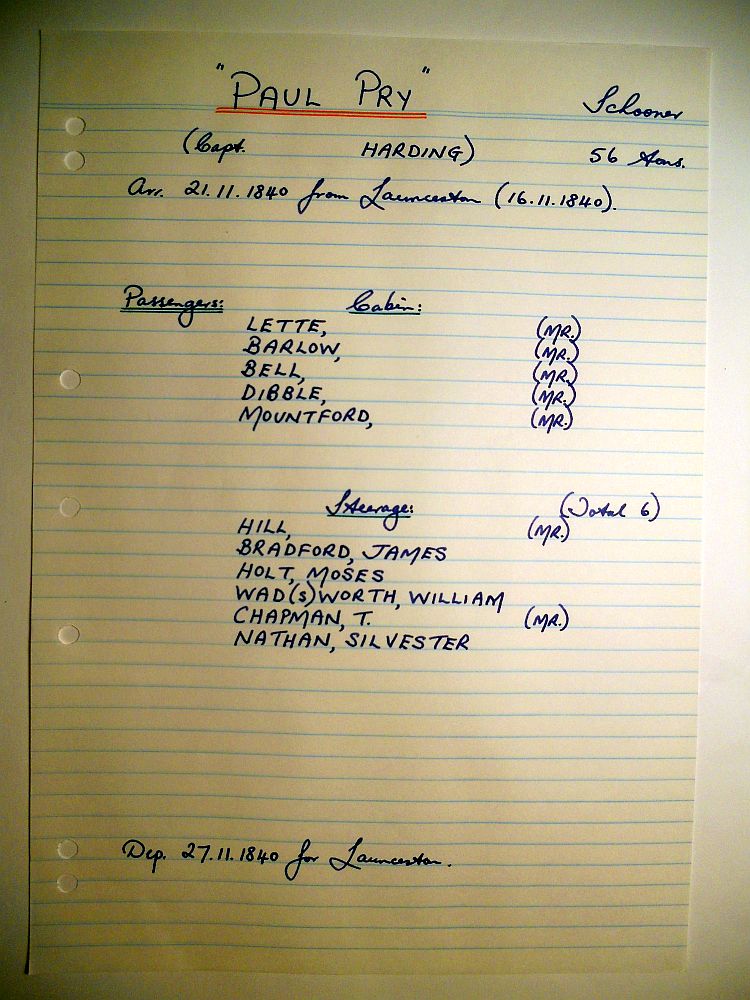 "PAUL PRY" Schooner
(Capt. HARDING) 56 tons.
Arr. 21.11.1840 from Launceston (16.11.1840).
Passengers: Cabin:
LETTE, (MR.)
BARLOW, (MR.)
BELL, (MR.)
DIBBLE, (MR.)
MOUNTFORD, (MR.)
Steerage: (Total 6)
HILL, (MR.)
BRADFORD, JAMES
HOLT, MOSES
WAD(S)WORTH, WILLIAM
CHAPMAN, T. (MR.)
NATHAN, SILVESTER
Dep. 27.11.1840 for Launceston.